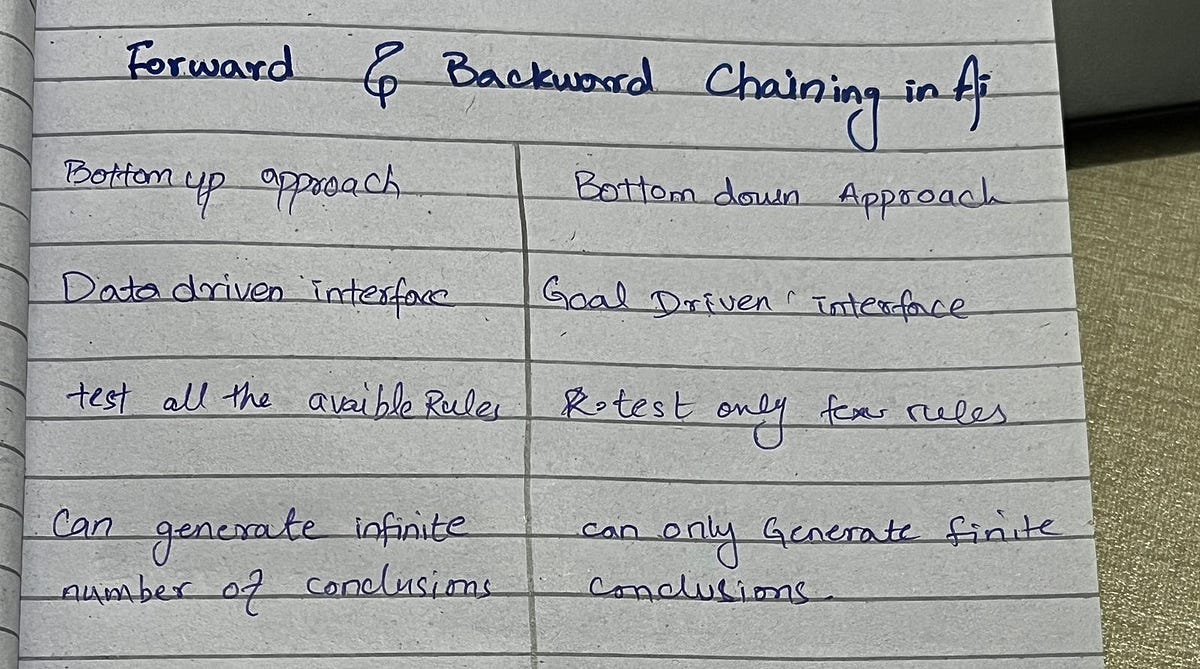 Forward & Backward Chaining in Ai
Bottom up approach
Bottom down Approach
Data driven interface
Goal Driven interface
test all the avaible Rules
test only few rules
Can generate infinite
number of conclusions
can only Generate finite
conclusions.